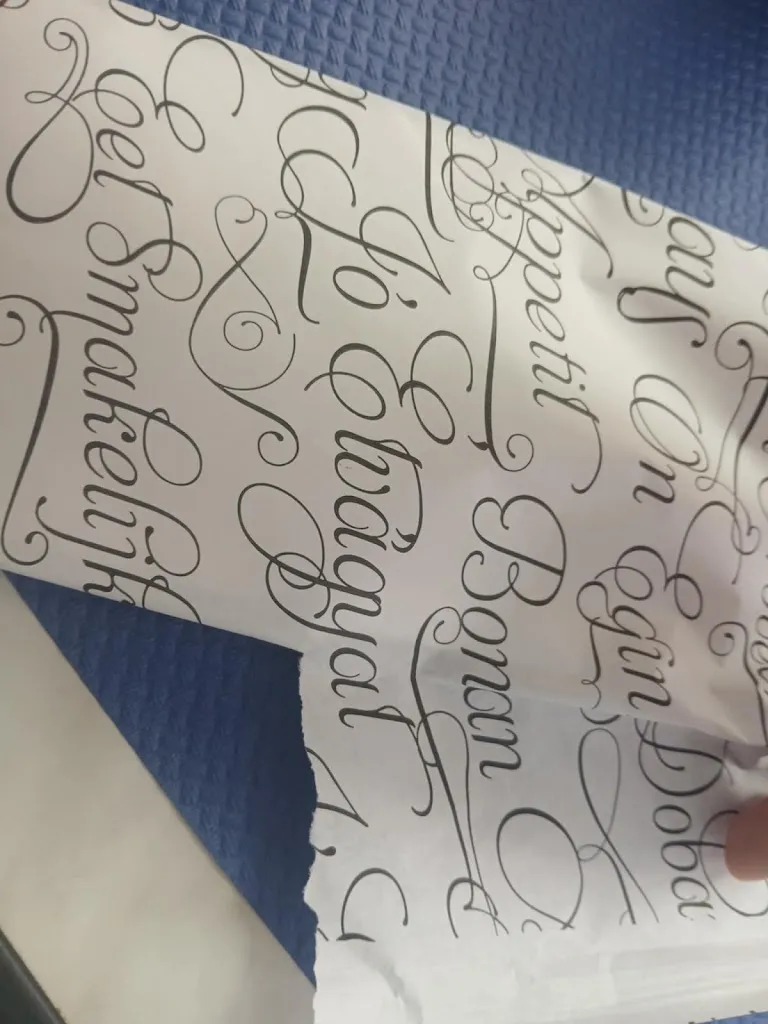 On Egin Doba
Appetit Bonan
Jó Etvágyat
Eet Smakelijk